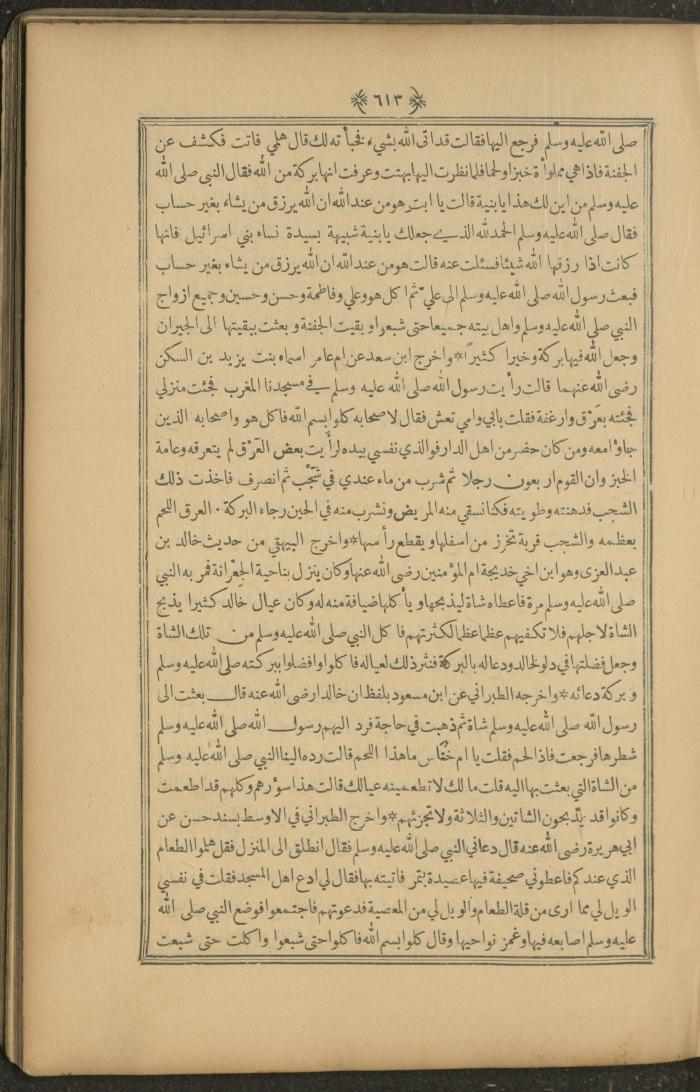 ٦١٣
صلى الله عليه وسلم فرجع اليها فقالت قد اتى الله بشيء فخبأ ته لك قال هلمي فاتت فكشف عن
الجفنة فاذا هي مملوأة خبزا ولحما فلما نظرت اليها بهتت وعرفت انها بركة من الله فقال النبي صلى الله
عليه وسلم من اين لك هذا يا بنية قالت يا ابت هو من عند الله ان الله يرزق من يشاء بغير حساب
فقال صلى الله عليه وسلم الحمد لله الذي جعلك يا بنية شبيهة بسيدة نساء بني اسرائيل فانها
كانت اذا رزقها الله شيئا فسئلت عنه قالت هو من عند الله ان الله يرزق من يشاء بغير حساب
فبعث رسول الله صلى الله عليه وسلم الى علي ثم اكل هو وعلي وفاطمة وحسن وحسين وجميع ازواج
النبي صلى الله عليه وسلم واهل بيته جميعا حتى شبعوا و بقيت الجفنة و بعثت ببقيتها الى الجيران
وجعل الله فيها بركة وخيرا كثيراً * واخرج ابن سعد عن ام عامر اسماء بنت يزيد بن السكن
رضى الله عنهما قالت رأيت رسول الله صلى الله عليه وسلم في مسجدنا المغرب فجئت منزلي
فجئته بعَرْق وارغفة فقلت بابي وامي تعش فقال لاصحابه كلوا بسم الله فاكل هو واصحابه الذين
جاؤا معه ومن كان حضر من اهل الدار فوالذي نفسي بيده لرأيت بعض العَرْق لم يتعرقه وعامة
الخبز وان القوم اربعون رجلا ثم شرب من ماء عندي في شَجْب ثم انصرف فاخذت ذلك
الشجب فدهنته وطويته فكنا نسقي منه المريض ونشرب منه في الحين رجاء البركة ٠ العرق اللحم
بعظمه والشجب قربة تخرز من اسفلها ويقطع رأسها * واخرج البيهقي من حديث خالد بن
عبد العزى وهو ابن اخي خديجة ام المؤمنين رضى الله عنها وكان ينزل بناحية الجِعْرانة فمر به النبي
صلى الله عليه وسلم مرة فاعطاه شاة ليذبحها و يأكلها ضيافة منه له وكان عيال خالد كثيرا يذبح
الشاة لاجلهم فلا تكفيهم عظما عظما لكثرتهم فاكل النبي صلى الله عليه وسلم من تلك الشاة
وجعل فضلتها في دلو لخالد ودعا له بالبركة فنثر ذلك لعياله فاكلوا وافضلوا ببركته صلى الله عليه وسلم
و بركة دعائه * واخرجه الطبراني عن ابن مسعود بلفظ ان خالدا رضى الله عنه قال بعثت الى
رسول الله صلى الله عليه وسلم شاة ثم ذهبت في حاجة فرد اليهم رسول الله صلى الله عليه وسلم
شطرها فرجعت فاذا لحم فقلت يا ام خُنَّاس ما هذا اللحم قالت رده الينا النبي صلى الله عليه وسلم
من الشاة التي بعثت بها اليه قلت ما لك لا تطعمينه عيالك قالت هذا سؤرهم وكلهم قد اطعمت
وكانوا قد يذبحون الشاتين والثلاثة ولا تجزئهم * واخرج الطبراني في الاوسط بسند حسن عن
ابي هريرة رضى الله عنه قال دعاني النبي صلى الله عليه وسلم فقال انطلق الى المنزل فقل هلموا الطعام
الذي عندكم فاعطوني صحيفة فيها عصيدة بتمر فاتيته بها فقال لي ادع اهل المسجد فقلت في نفسي
الويل لي مما ارى من قلة الطعام والويل لي من المعصية فدعوتهم فاجتمعوا فوضع النبي صلى الله
عليه وسلم اصابعه فيها وغمز نواحيها وقال كلوا بسم الله فاكلوا حتى شبعوا واكلت حتى شبعت